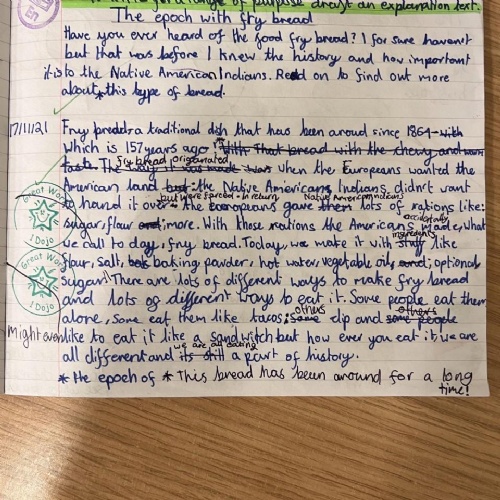 for a range of purpose draft an explanation text.
The epoch with fry bread
Have you ever heard of the food fry bread? I for sure haven't
but that was before I knew the history and how important
it is to the Native American Indians. Read on to find out more
about * this type of bread.
17/11/21
Fry bread a traditional dish that has been aroud since 1864 with
which is 157 years ago! With That bread with the chewy and
taste. The way it was made was Fry bread origanated when the Europeans wanted the
American land but: the Native Americans Indians didn't want
to hand it over but were forced - in return the Europeans gave them Native American indians lots of rations like:
sugar, flour and more. With those rations the Americans accidentally made, what
we call to day, fry bread. Today, we make it with stuff ingredients like
flour, salt, bak baking powder, hot water, vegetable oil, and; optional
sugar!! There are lots of different ways to make fry bread
and lots of different ways to eat it. Some people eat them
alone, Some eat them like tacos; some others dip and some people others
might even like to eat it like a sandwitch but how ever you eat it, we are
all different and its still we are all eating a part of history.
* the epoch of * This bread has been around for a long
time!
Great Work
1 Dojo
Great Work
1 Dojo